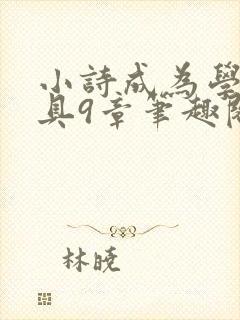 小詩成為學
具9章筆趣閱
林曉